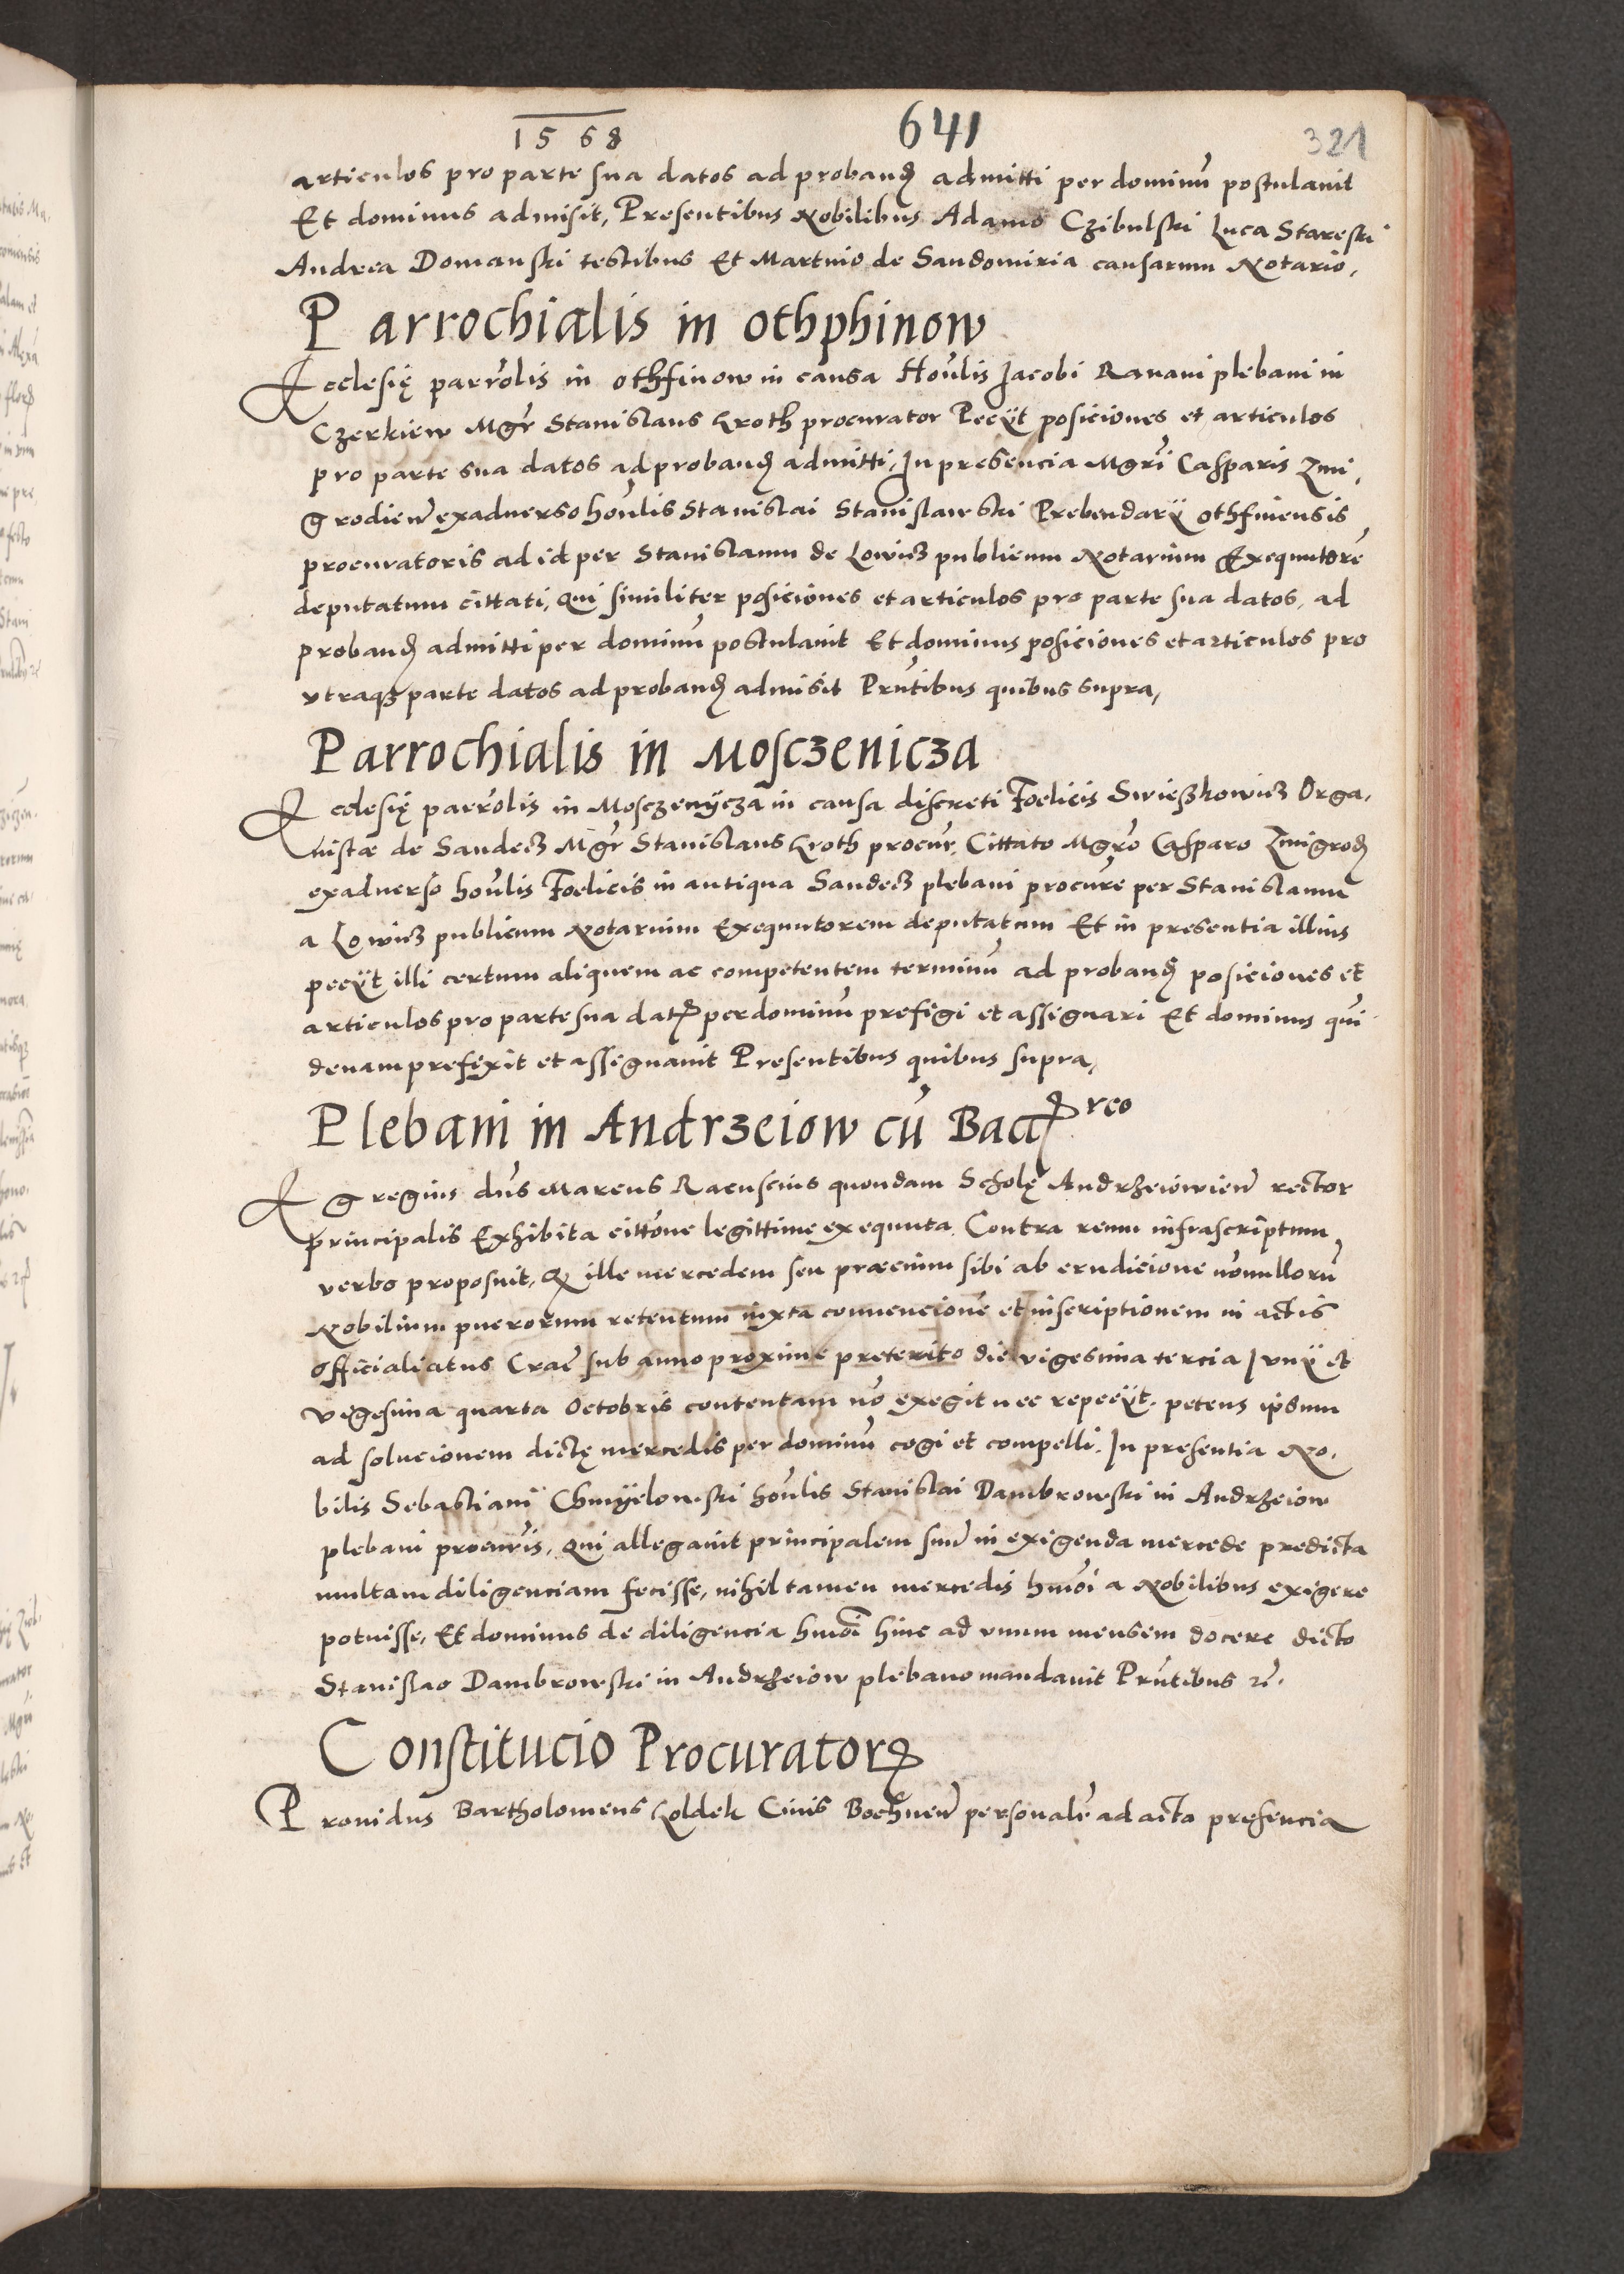 1568
641
321
articulos pro parte sua datos ad proband admitti per dominū postulauit
Et dominus admisit, Presentibus Nobilibus Adamo Czibulski Luca Stareski
Andrea Domanski testibus Et Martino de Sandomiria causarum Notario,
Parrochialis in othphinow
Ecclesię parrolis in othfinow in causa Honlis Jacobi Ranani plebani in
Czerkiew Mgr Stanislaus Kroth procurator Pecÿt posiciones et articulos
pro parte sua datos ad proband admitti, In presencia Mgri Casparis Zmi,
grodien exaduerso honlis Stanislai Stanislawski Prebendarÿ othfiniensis
procuratoris ad id per Stanislaum de Lowicz publicum Notarium Exequutorē
deputatum cittati, Qui similiter posiciones et articulos pro parte sua datos, ad
proband admitti per dominū postulauit Et dominus posiciones et articulos pro
vtraqȝ parte datos ad proband admisit Prntibus quibus supra,
Parrochialis in Mosczenicza
Ecclesię parrolis in Mosczenÿcza in causa discreti Foelicis Swieszkowicz Orga,
nistæ de Sandecz Mgr Stanislaus Kroth procur, Cittato Mgro Casparo Zmigrod
exaduerso honlis Foelicis in antiqua Sandecz plebani procure per Stanislaum
a Lowicz publicum Notarium Exequutorem deputatum Et in presentia illius
pecÿt illi certum aliquem ac competentem terminū ad proband posiciones et
articulos pro parte sua datꝝ per dominū prefigi et assignari Et dominus qui
denam prefixit et assignauit Presentibus quibus supra,
Plebani in Andrzeiow cū Bacꝝreo
Egregius dns Marcus Racuscius quondam Scholę Andrzeiowien rector
principalis Exhibita cittone legittime exequuta Contra reum infrascriptum,
verbo proposuit, Qꝫ ille mercedem seu præcium sibi ab erudicione nōnullorū
Nobilium puerorum retentum iuxta conuencionē et inscriptionem in actis
officialiatus Crac sub anno proxime preterito die vigesima tercia Junÿ et
vigesima quarta Octobris contentam nō exegit nec repecÿt. petens ipsum
ad solucionem dictę mercedis per dominū cogi et compelli. In presentia No,
bilis Sebastiani Chmÿelowski honlis Stanislai Dambrowski in Andrzeiow
plebani procuris, Qui allegauit principalem suū in exigenda mercede predicta
multam diligenciam fecisse, nihil tamen mercedis hmōi a Nobilibus exigere
potuisse, Et dominus de diligencia hmōi hinc ad vnum mensem docere dicto
Stanislao Dambrowski in Andrzeiow plebano mandauit Prntibus vt.
Constitucio Procuratorꝝ
Prouidus Bartholomeus Koldek Ciuis Bochnen personalr ad acta presencia